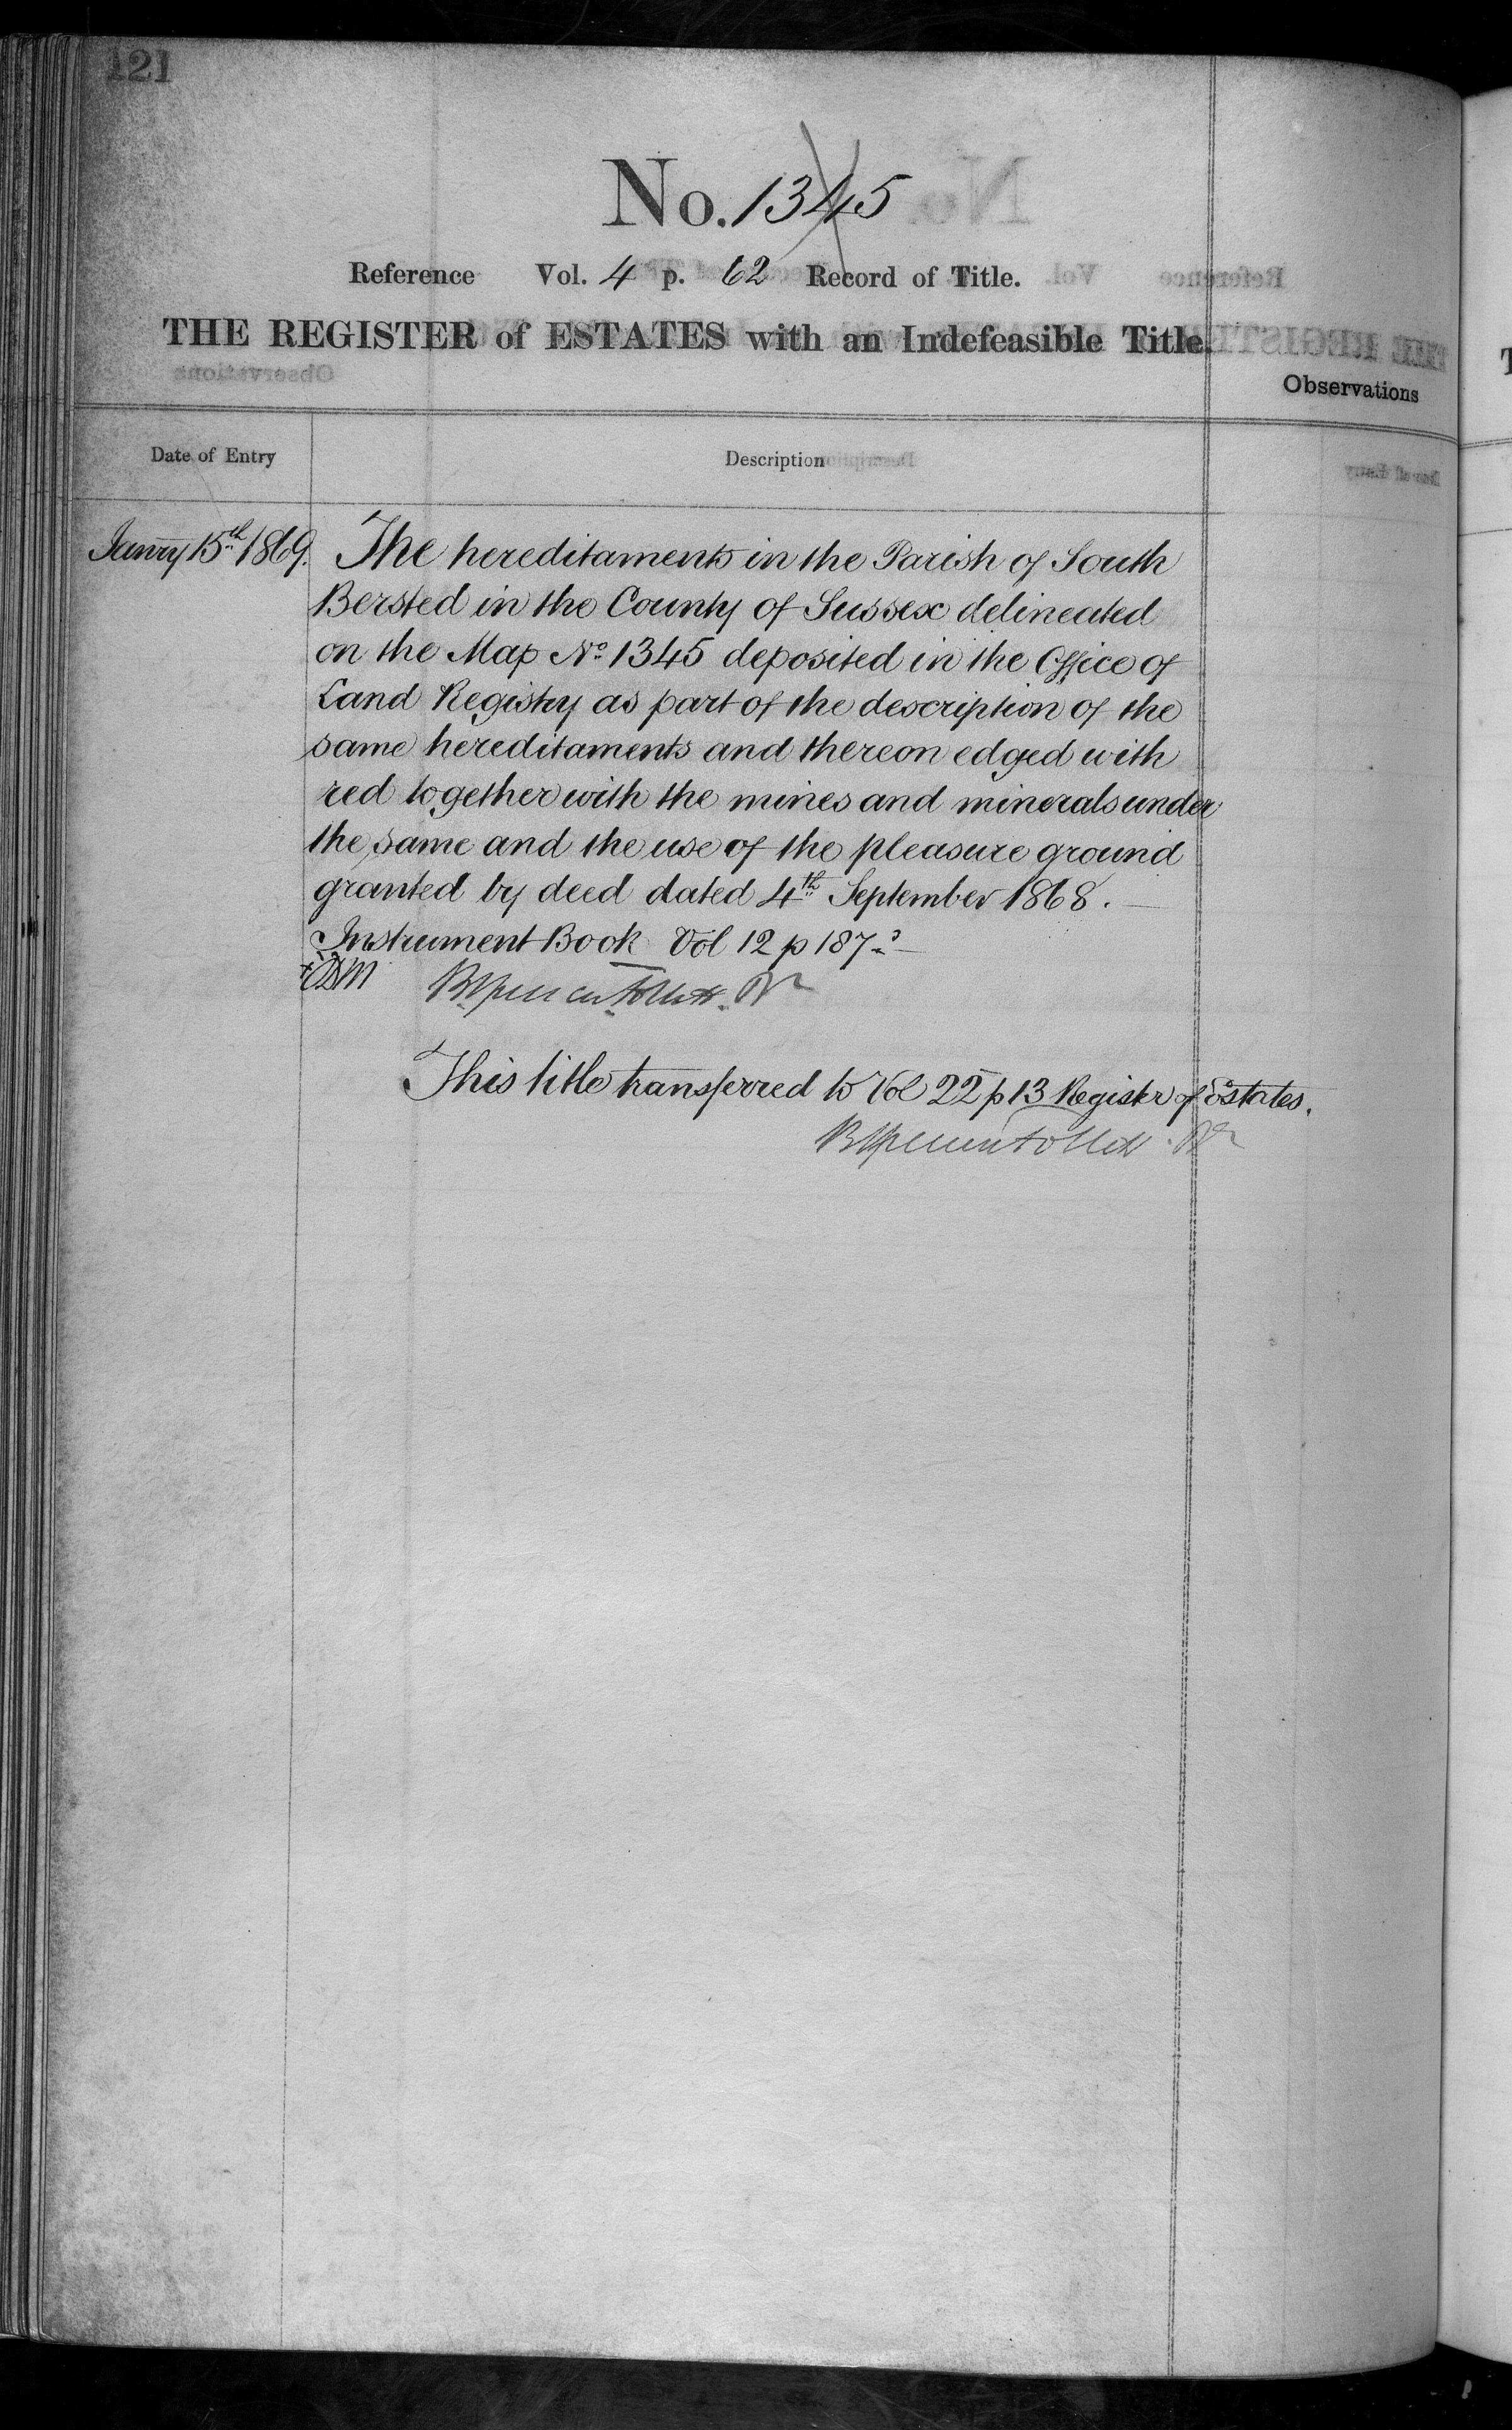 121
No. 1345
Reference Vol. 4 p. 62 Record of Title.
THE REGISTER of ESTATES with an Indefeasible Title.
Observations
Date of Entry
Description
Janry 15th 1869.
The hereditaments in the Parish of South
Bersted in the County of Sussex delineated
on the Map No 1345 deposited in the Office of
Land Registry as part of the description of the
same hereditaments and thereon edged with
red together with the mines and minerals under
the same and the use of the pleasure ground
granted by deed dated 4th September 1868.
Instrument Book Vol 12 p 187
This title transferred to Vol 22 p 13 Register of Estates.